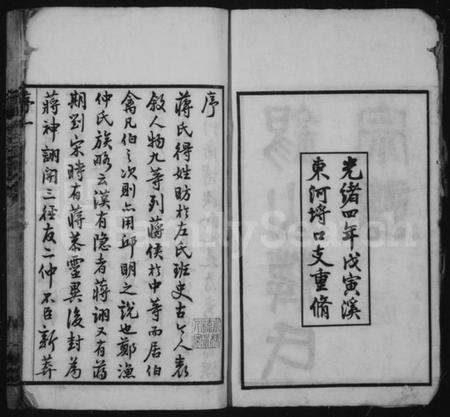 光緒四年戊寅溪
東河埒口支重脩
序
蔣氏得姓昉於左氏班史古今人表
敘人物九等列蔣侯於中等而居伯
禽凡伯之次則占用邱明之說也鄭漁
仲氏族略云漢有隱者蔣詡又有蔣
期到宋時有蔣恭靈異後封為
蔣神詡開三徑友二仲不臣新莽
序一
FamilySearch